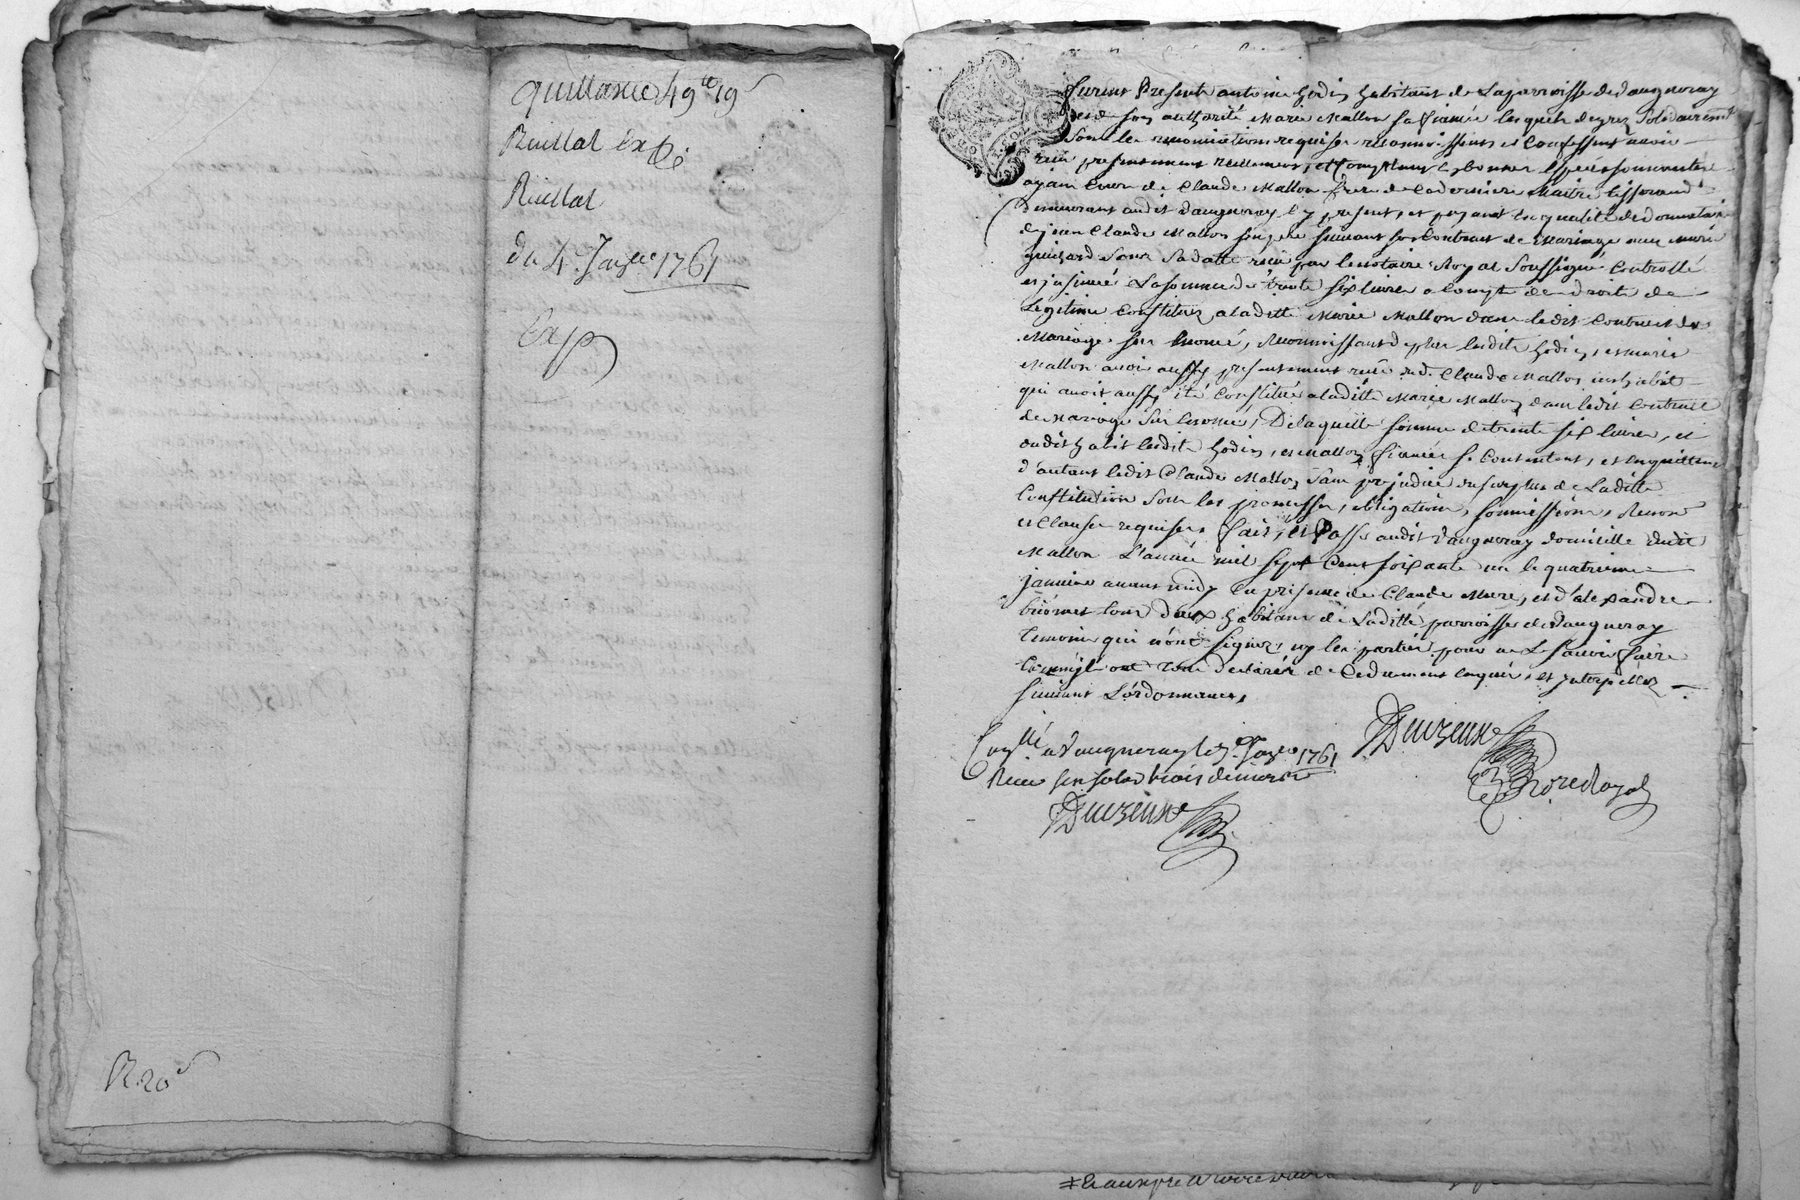 quittance 49ᵗᵗ 19ˢ
Reullat
Reullat
du 4ᵉ Janᵛᵉʳ 1761
Exp
R. 20ˢ
furent Presents antoine hodin habitant de La parroisse de Vaugneray
et de son authorité Marie Mallon sa fiancée lesquels de grez solidairement
sous les renonciations requises reconnoissent et Confessent avoir
receu presentement reellement, et Comptant en bonnes espèces sonnantes
ayant Cours de Claude Mallon frere de Cadernière Maitre tisserand
demeurant audit Vaugneray ici present, et payant en qualité de donnataire
de jean Claude Mallon son pere suivant son Contrat de Mariage avec Marie
guichard sous sa datte receu par le notaire Royal soussigné Controllé
et insinué La somme de trente six livres a Compte des droits de
Légitime Constituez a laditte Marie Mallon dans ledit Contract de
Mariage sus énoncé, Reconnoissant de plus lesdits hodin, et marie
Mallon avoir aussy presentement receu dud. Claude Mallon un habit
qui avoit aussy été Constitué a laditte Marie Mallon dans ledit Contract
de Mariage sus enoncé, De laquelle somme de trente six livres, et
dudit habit lesdits hodin, et Mallon fiancés se Contentent, et en quittent
d'autant ledit Claude Mallon sans prejudice du surplus de Laditte
Constitution sous les promesses, obligations, soumissions, Renonᵒⁿˢ
et Clauses requises, fait, et Passé audit Vaugneray domicille dudit
Mallon L'année mil sept Cent soixante un le quatrieme
janvier avant midy En presence de Claude Mure, et d'alexandre
briomet tous deux habitans de Laditte parroisse de Vaugneray
temoins qui n'ont signez, ny les parties pour ne Le savoir faire
Comme ils ont tous declarez de Ce dument enquis, et interpellez
suivant L'ordonnance,
Conᵗˡˡé a Vaugneray le 5ᵉ Janᵛᵉʳ 1761
Receu six sols trois deniers
Nore Royal